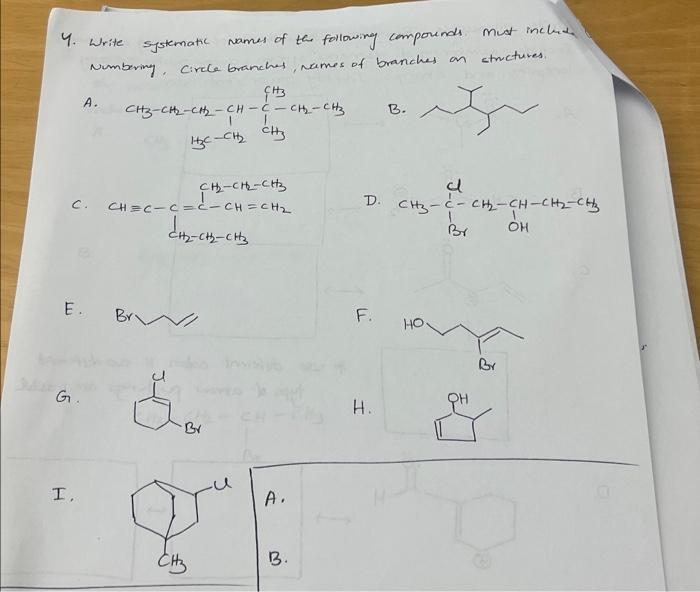 4. Write systematic names of the following compounds. Must include
Numbering, circle branches, names of branches on structures.
A.
CH3
CH3-CH2-CH2-CH-C-CH2-CH3
H3C-CH2 CH3
B.
C.
CH2-CH2-CH3
CH≡C-C=C-CH=CH2
CH2-CH2-CH3
D.
Cl
CH3-C-CH2-CH-CH2-CH3
Br OH
E.
Br
F.
HO
Br
G.
Cl
Br
H.
OH
I.
Cl
CH3
A.
B.